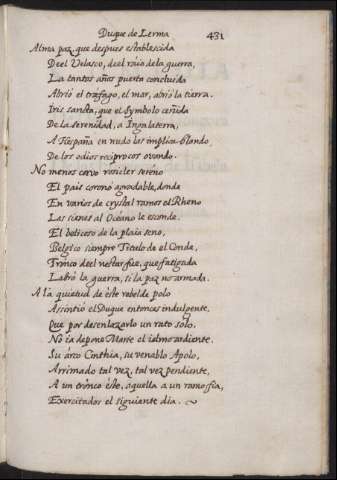 Duque de Lerma 431
Alma paz, que despues establescida
Deel Velasco, deel raio dela guerra,
La tantos años puerta concluida
Abrió el trafago, el mar, abrió la tierra.
Iris sancta, que el symbolo ceñida
De la serenidad, a Ingalaterra,
A Hespaña en nudo las implica blando,
De los odios reciprocos ovando.
No menos corvo rosicler sereno
El pais coronó agradable, donde
En varios de crystal ramos el Rheno
Las sienes al Océano le esconde.
El belicoso de la plaia seno,
Belgico siempre Titulo de el Conde,
Tronco deel nectar fue, que fatigada
Labró la guerra, si la paz no armada.
A la quietud de éste rebelde polo
Assintió el Duque entonces indulgente,
Que por desenlazarlo un rato solo.
No ia depone Marte el ielmo ardiente.
Su árco Cinthia, su venablo Apolo,
Arrimado tal vez, tal vez pendiente,
A un tronco éste, aquella a un ramo fia,
Exercitados el siguiente dia.